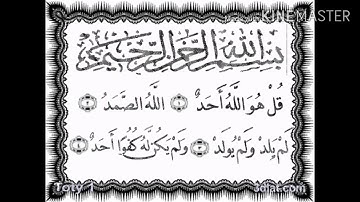 Made with
KINEMASTER
بسم الله الرحمن الرحيم
قُلْ هُوَ اللَّهُ أَحَدٌ ١ اللَّهُ الصَّمَدُ ٢
لَمْ يَلِدْ وَلَمْ يُولَدْ ٣ وَلَمْ يَكُن لَّهُ كُفُوًا أَحَدٌ ٤
Toty 1
3dlat.com